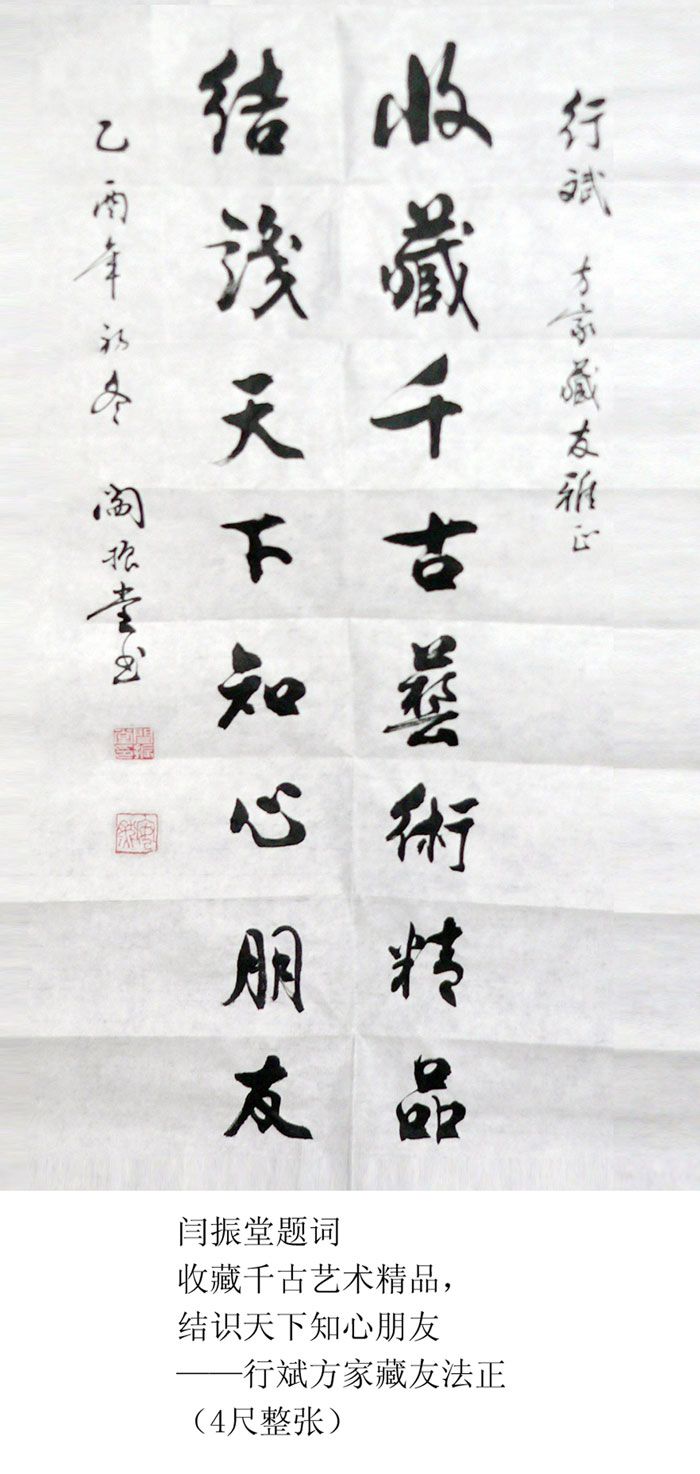 行斌 方家藏友雅正
收藏千古藝術精品
結識天下知心朋友
乙酉年初冬 閻振堂书
闫振堂题词
收藏千古艺术精品，
结识天下知心朋友
——行斌方家藏友法正
（4尺整张）